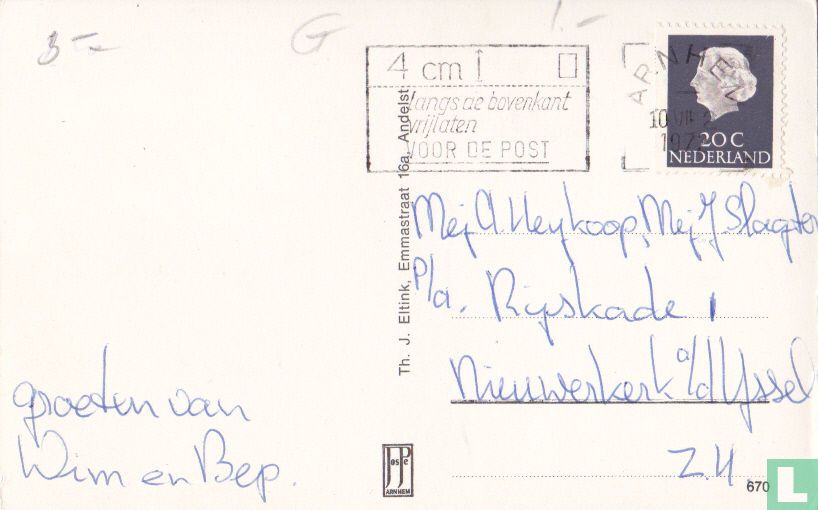 3 -
G
1.-
4 cm
langs de bovenkant
vrijlaten
VOOR DE POST
ARNHEM
20 C
NEDERLAND
Th. J. Eltink, Emmastraat 16a, Andelst
Mej A Heykoop, Mej Y Slagter
P/a. Rijskade 1
Nieuwerkerk a/d Yssel
Z.H.
groeten van
Wim en Bep.
JosPe
ARNHEM
670
L